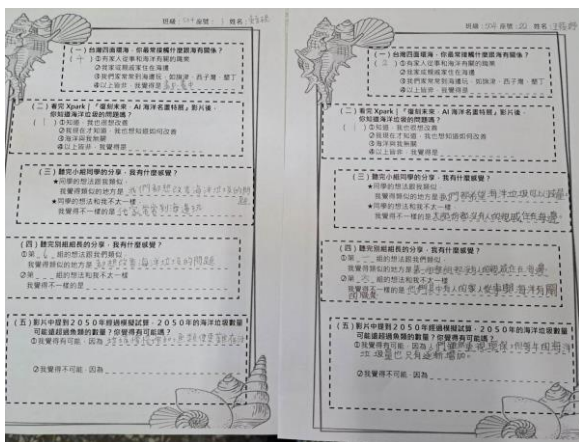 班級：504 座號：1 姓名：
(一)台灣四面環海，你最常接觸什麼跟海有關係？
(4)①有家人從事和海洋有關的職業
②我家或親戚家住在海邊
③我們家常常到海邊玩，如旗津、西子灣、墾丁
④以上皆非，我覺得是
(二)看完Xpark「『復刻未來』AI海洋名畫特展」影片後，
你知道海洋垃圾的問題嗎？
(1)①知道，我也很想改善
②我現在才知道，我也想知道如何改善
③海洋與我無關
④以上皆非，我覺得是
(三)聽完小組同學的分享，我有什麼感覺？
★同學的想法跟我類似，
我覺得類似的地方是我們都想改善海洋垃圾的問題
★同學的想法和我不太一樣
我覺得不一樣的是他家常常到海邊玩
(四)聽完別組組長的分享，我有什麼感覺？
①第6組的想法跟我們類似，
我覺得類似的地方是都想改善海洋垃圾的問題
②第 組的想法和我不太一樣
我覺得不一樣的是
(五)影片中提到2050年經過模擬試算，2050年的海洋垃圾數量
可能遠超過魚類的數量？你覺得有可能嗎？
①我覺得有可能，因為
②我覺得不可能，因為
班級：504 座號：20 姓名：
(一)台灣四面環海，你最常接觸什麼跟海有關係？
(2)①有家人從事和海洋有關的職業
②我家或親戚家住在海邊
③我們家常常到海邊玩，如旗津、西子灣、墾丁
④以上皆非，我覺得是
(二)看完Xpark「『復刻未來』AI海洋名畫特展」影片後，
你知道海洋垃圾的問題嗎？
(1)①知道，我也很想改善
②我現在才知道，我也想知道如何改善
③海洋與我無關
④以上皆非，我覺得是
(三)聽完小組同學的分享，我有什麼感覺？
★同學的想法跟我類似，
我覺得類似的地方是我們都覺得海洋垃圾可以改善
★同學的想法和我不太一樣
我覺得不一樣的是
(四)聽完別組組長的分享，我有什麼感覺？
①第 組的想法跟我們類似，
我覺得類似的地方是
②第 組的想法和我不太一樣
我覺得不一樣的是
(五)影片中提到2050年經過模擬試算，2050年的海洋垃圾數量
可能遠超過魚類的數量？你覺得有可能嗎？
①我覺得有可能，因為
②我覺得不可能，因為